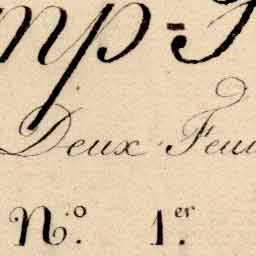 mp-
Deux Feui
N.º 1.er